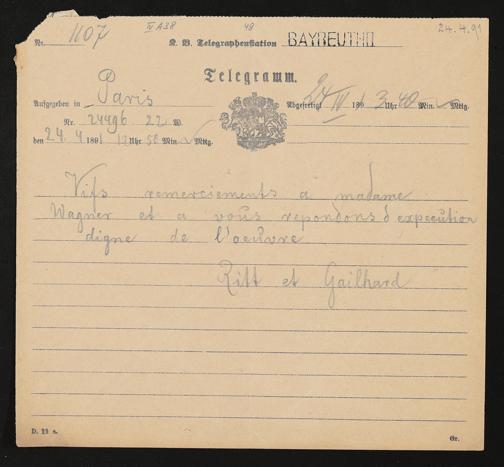 IV A 38 48 24.4.91
Nr. 1107 K. B. Telegraphenstation BAYREUTH
Telegramm.
Aufgegeben in Paris Abgefertigt 24 IV 189 3 Uhr 40 Min. Mttg.
Nr. 24496 22 W.
den 24. 4 1891 12 Uhr 50 Min. Mttg.
Vifs remerciements a madame
Wagner et a vous repondons d expecution
digne de l'oeuvre
Ritt et Gailhard
D. 23 a. Gr.